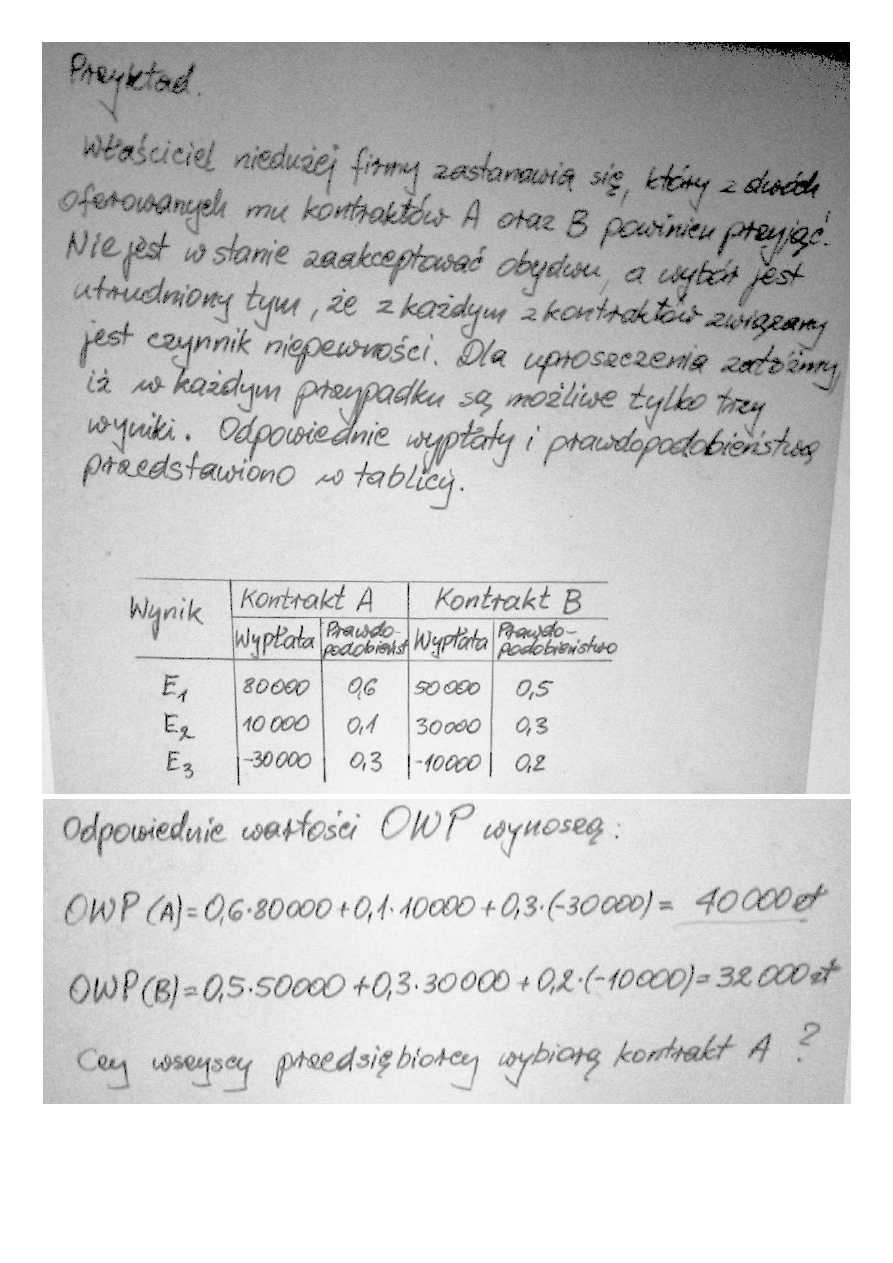 Przykład.
Właściciel niedużej firmy zastanawia się, który z dwóch
oferowanych mu kontraktów A oraz B powinien przyjąć.
Nie jest w stanie zaakceptować obydwu, a wybór jest
utrudniony tym, że z każdym z kontraktów związany
jest czynnik niepewności. Dla uproszczenia załóżmy,
iż w każdym przypadku są możliwe tylko trzy
wyniki. Odpowiednie wypłaty i prawdopodobieństwa
przedstawiono w tablicy.
Wynik Kontrakt A Kontrakt B
Wypłata Prawdo- Wypłata Prawdo-
podobieńst podobieństwo
E₁ 80000 0,6 50000 0,5
E₂ 10000 0,1 30000 0,3
E₃ -30000 0,3 -10000 0,2
Odpowiednie wartości OWP wynoszą:
OWP (A) = 0,6·80000 + 0,1·10000 + 0,3·(-30000) = 40000 zł
OWP (B) = 0,5·50000 + 0,3·30000 + 0,2·(-10000) = 32000 zł
Czy wszyscy przedsiębiorcy wybiorą kontrakt A ?